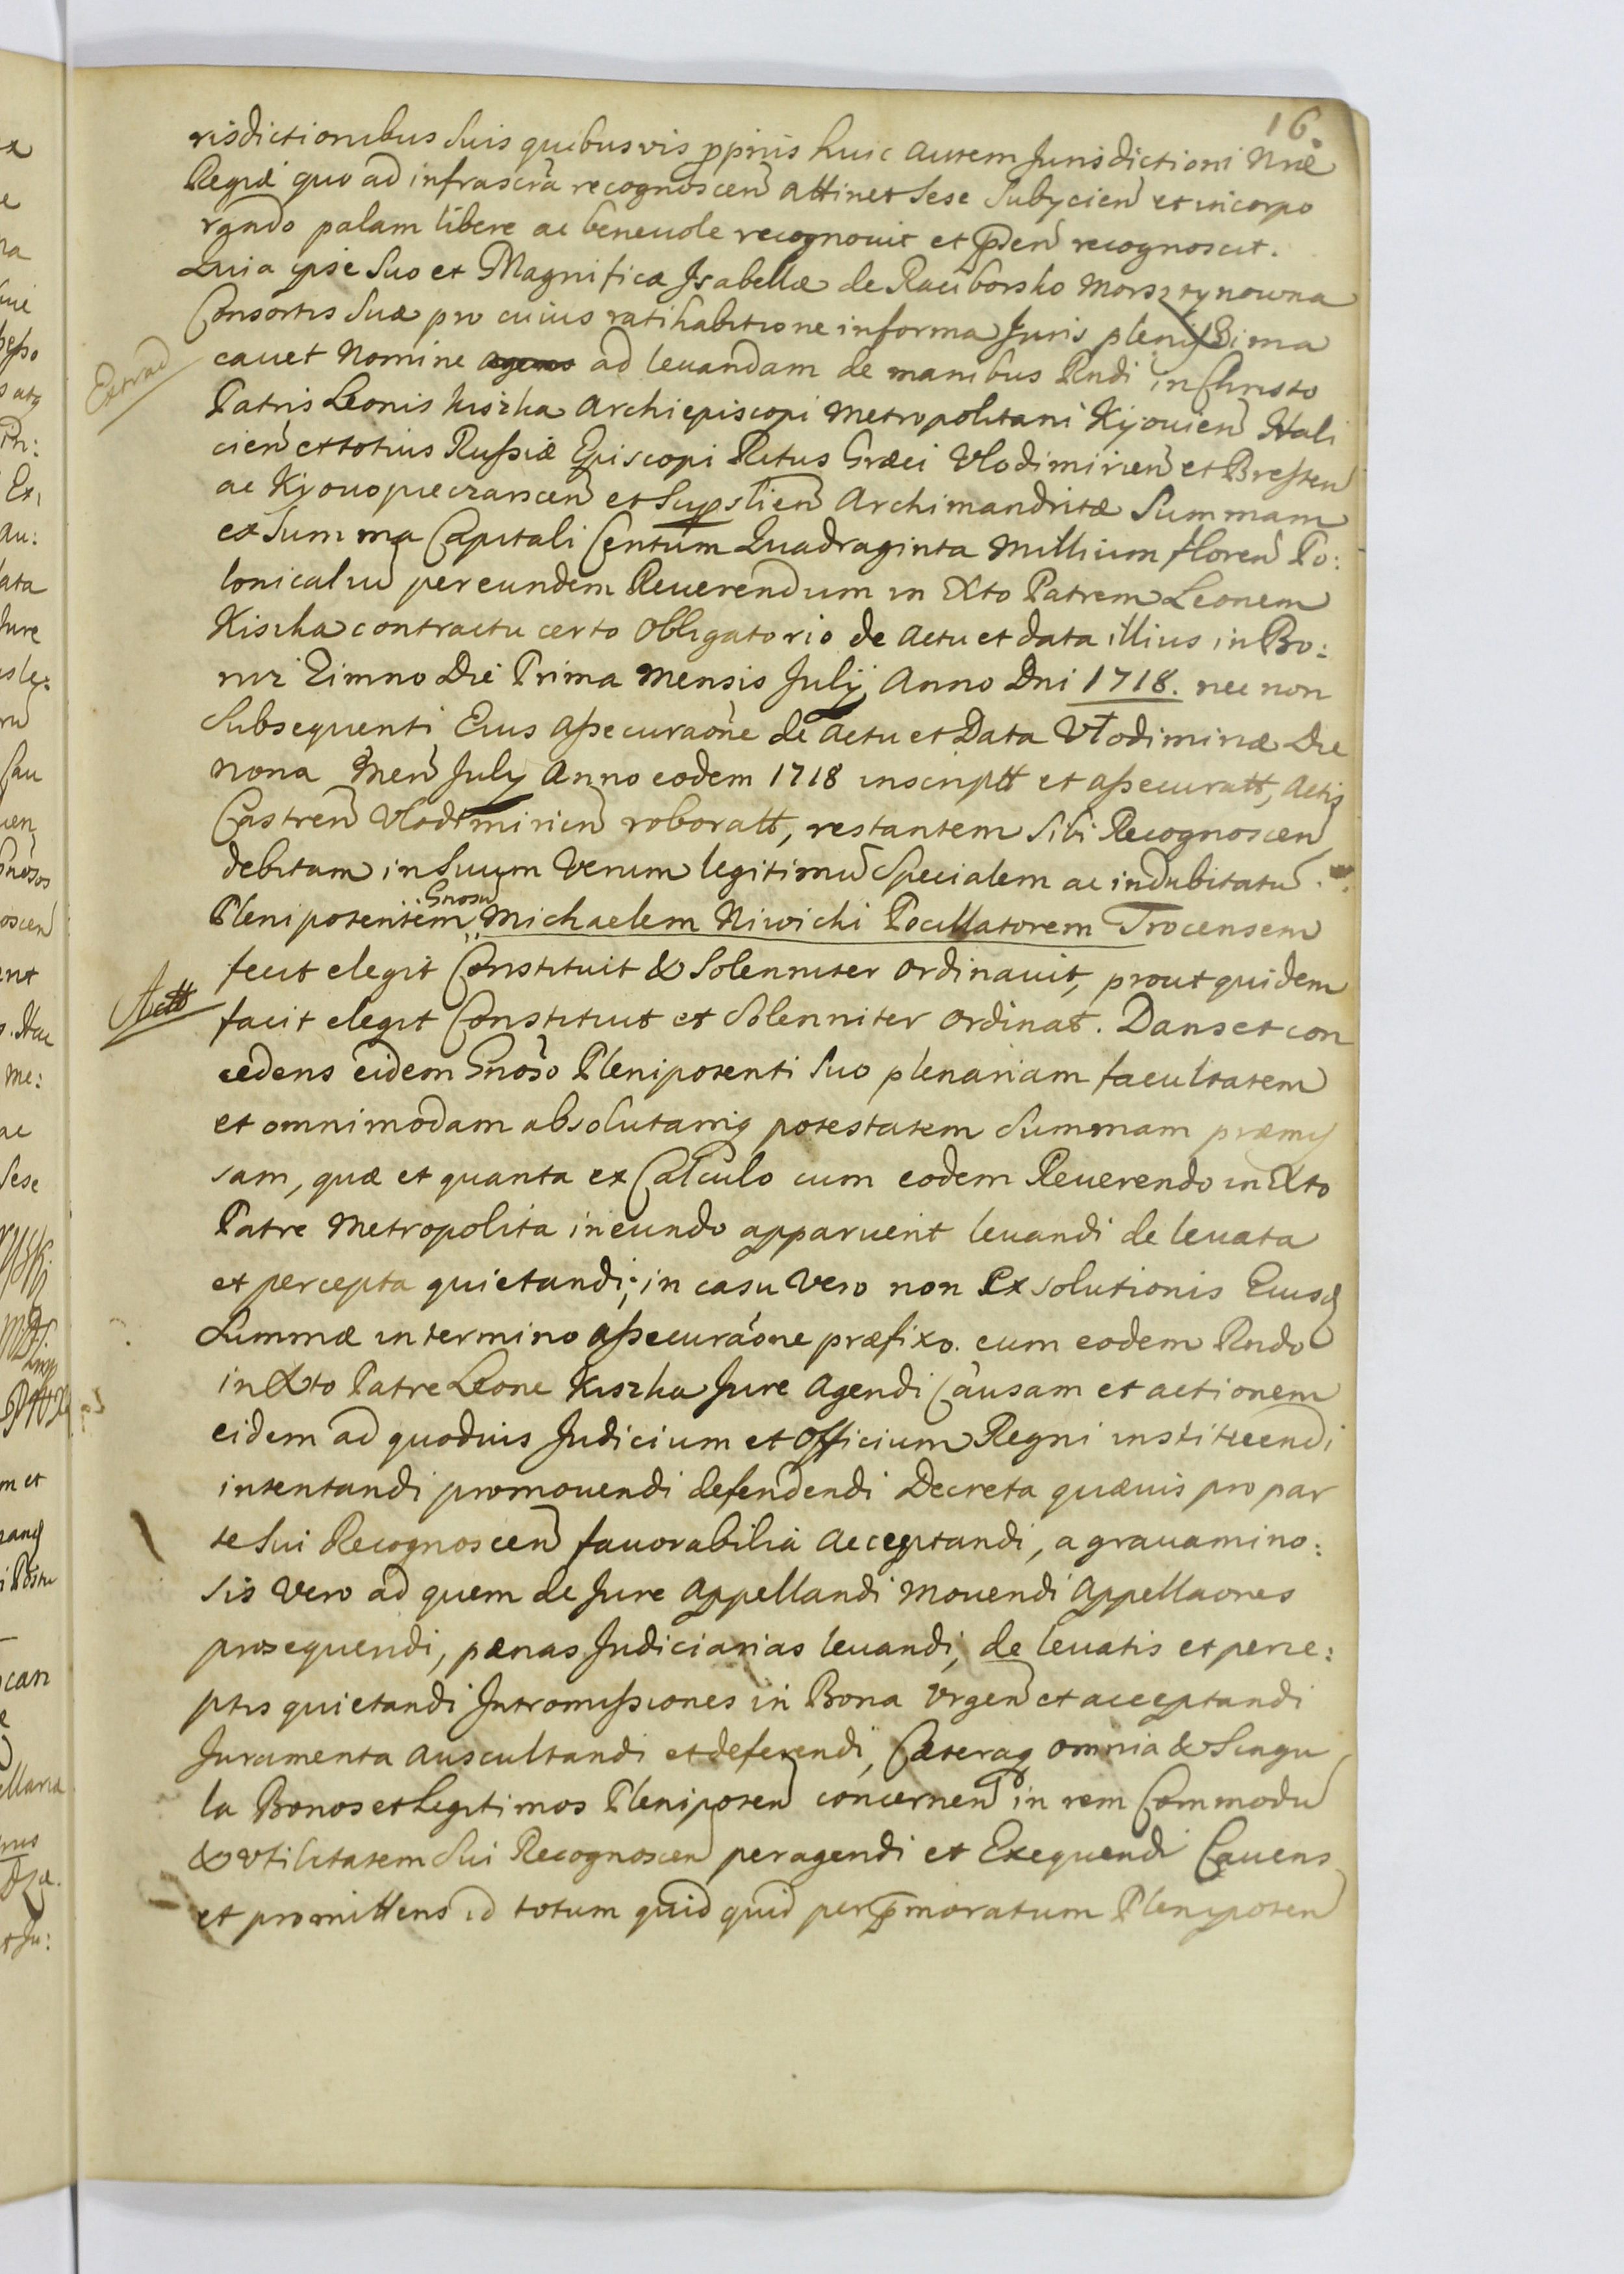 16.
risdictionibus suis quibusvis ppriis huic autem Jurisdictioni Nrae
Regiae quo ad infrascra recognoscen attinet sese subycien et incorpo
rando palam libere ac beneuole recognouit et pden recognoscit.
Quia ipse suo et Magnificae Isabellae de Raciborsko Morsztynowna
Consortis suae pro cuius ratihabitione in forma Juris plenissima
cauet nomine ad leuandam de manibus Rndi in Christo
Extrad
Patris Leonis Kiszka Archiepiscopi Metropolitani Kijouien Hali
cien et totius Russiae Episcopi Ritus Graeci Vlodimirien et Bresten
ac Kijouopieczarscen et Supslien Archimandritae Summam
ex Summa Capitali Centum Quadraginta Millium floren Po:
lonicaliu per eundem Reuerendum in Xto Patrem Leonem
Kiszka contractu certo obligatorio de actu et data illius in Bo:
nis Zimno Die Prima Mensis Julij Anno Dni 1718. nec non
subsequenti Eius assecuraone de actu et Data Vlodimiriae Die
nona Men July Anno eodem 1718 inscriptt et assecuratt, Actis
Castren Vlodimirien roboratt, restantem sibi Recognoscen
debitam in suum Verum legitimu specialem ac indubitatu
Plenipotentem Gnosu Michaelem Niwicki Pocillatorem Trocensem
fecit elegit Constituit & Solenniter ordinauit, prout quidem
Actt
facit elegit Constituit et Solenniter ordinat. Dans et con
cedens eidem Gnoso Plenipotenti suo plenariam facultatem
et omnimodam absolutamq potestatem summam praemis
sam, quae et quanta ex Calculo cum eodem Reuerendo in Xto
Patre Metropolita ineundo apparuerit leuandi de leuata
et percepta quietandi; in casu Vero non Exsolutionis Eiusd
Summae in termino assecuraone praefixo. cum eodem Rndo
in Xto Patre Leone Kiszka Jure agendi Causam et actionem
eidem ad quoduis Judicium et officium Regni instituendi
intentandi promouendi defendendi Decreta quaeuis pro par
te sui Recognoscen fauorabilia acceptandi, a grauamino:
sis Vero ad quem de Jure appellandi mouendi appellaones
prosequendi, paenas Judiciarias leuandi, de leuatis et perce:
ptis quietandi Intromissiones in Bona Vrgen et acceptandi
Juramenta auscultandi et deferendi, Caeteraq omnia & Singu
la Bonos et legitimos Plenipoten concernen in rem Commodu
& vtilitatem sui Recognoscen peragendi et Exequendi Cauens
et promittens id totum quid quid per pmoratum Plenipoten